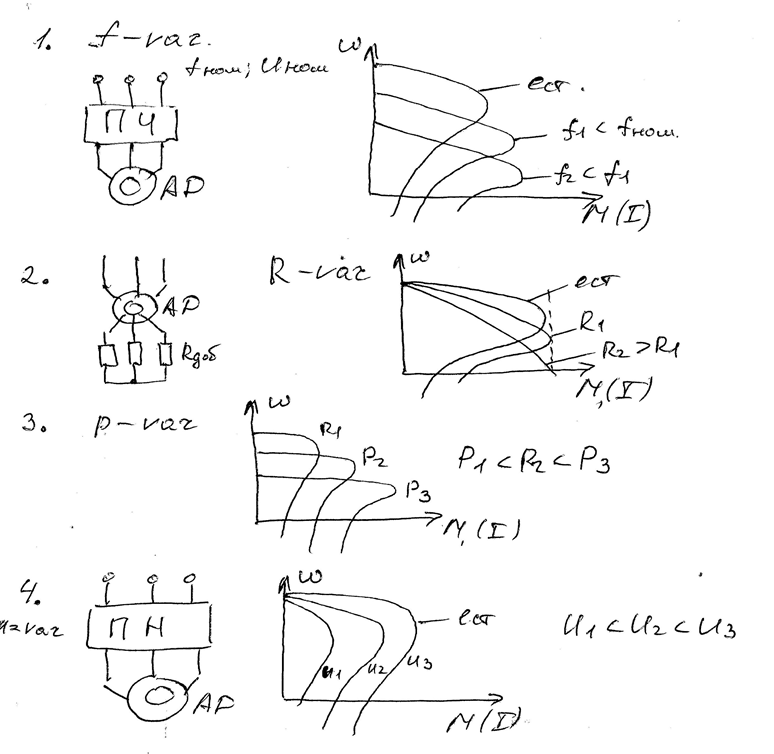 1. f-var.
fном; Uном
ПЧ
АД
ω
ест.
f1 < fном.
f2 < f1
M(I)
2.
АД
Rдоб
R-var
ω
ест
R1
R2 > R1
M,(I)
3. p-var
ω
P1
P2
P3
P1 < P2 < P3
M,(I)
4.
u=var
ПН
АД
ω
ест
u1
u2
u3
M(I)
U1 < U2 < U3